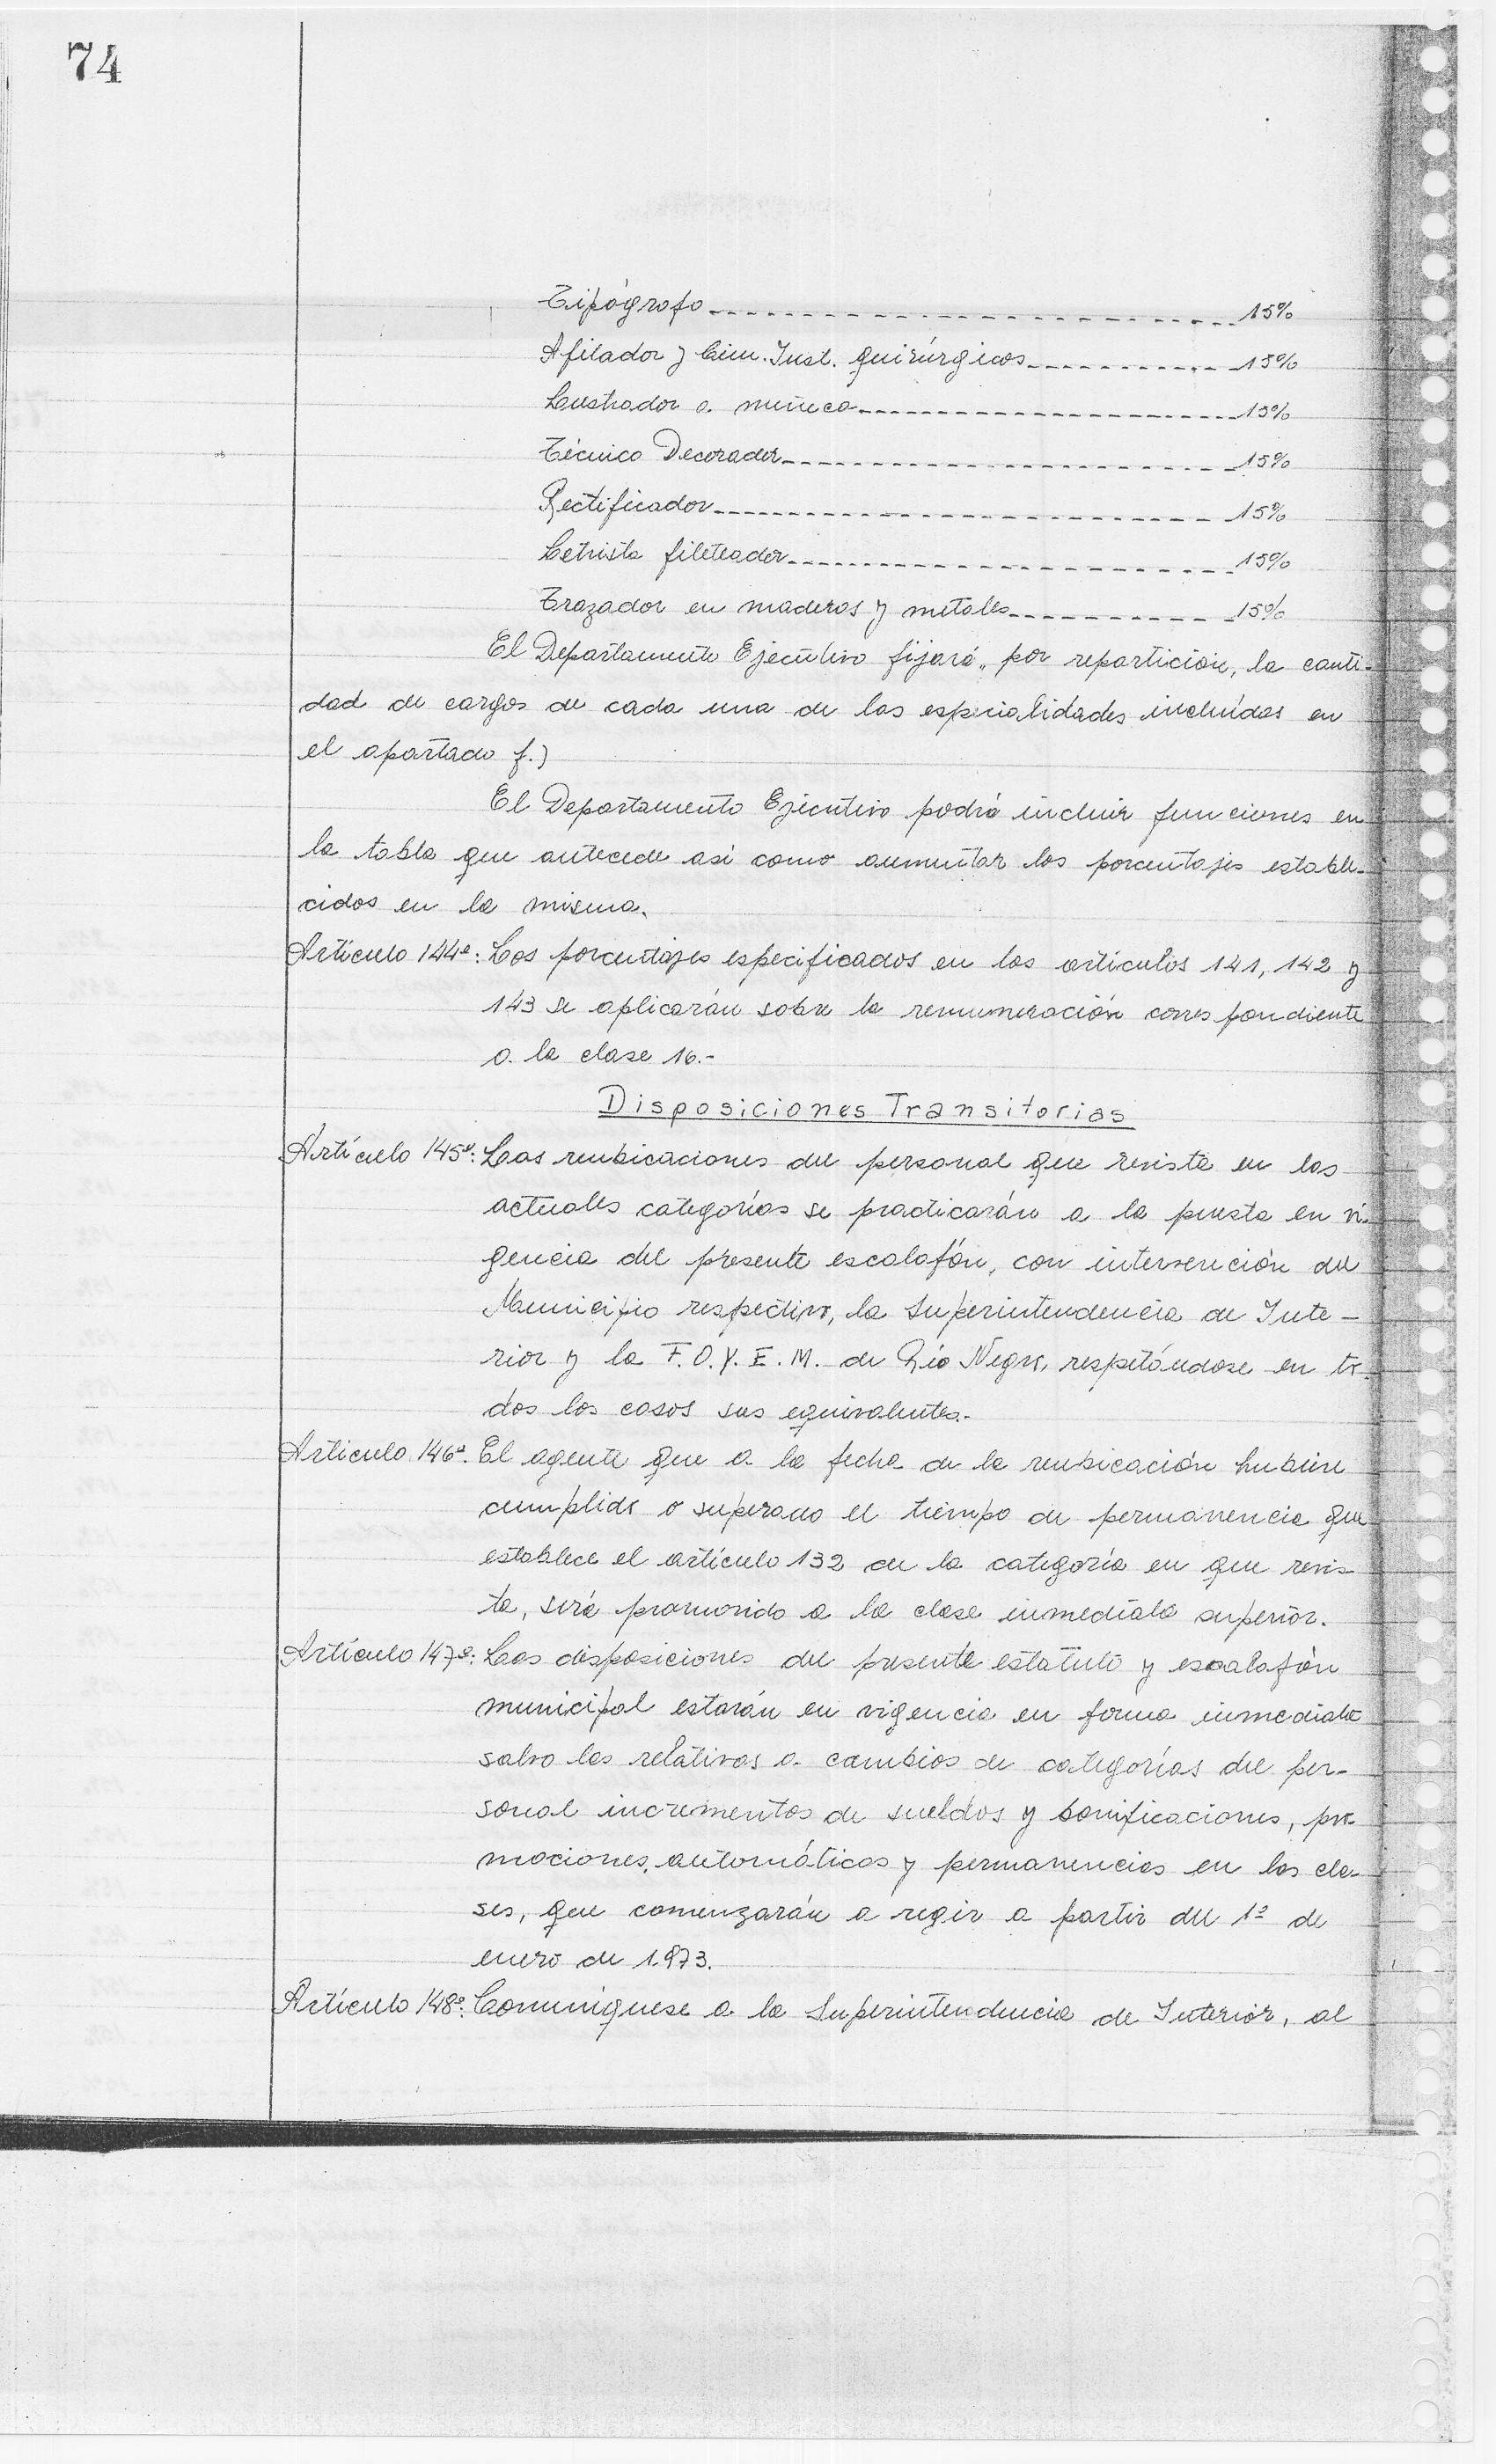 74
Tipógrafo 15%
Afilador y Cim. Inst. quirúrgicos 15%
Lustrador a muñeca 15%
Técnico Decorador 15%
Rectificador 15%
Letrista fileteador 15%
Trazador en maderas y metales 15%
El Departamento Ejecutivo fijará, por repartición, la canti-
dad de cargos de cada una de las especialidades incluídas en
el apartado f.)
El Departamento Ejecutivo podrá incluir funciones en
la tabla que antecede así como aumentar los porcentajes estable-
cidos en la misma.
Artículo 144º: Los porcentajes especificados en los artículos 141, 142 y
143 se aplicarán sobre la remuneración correspondiente
a la clase 16.-
Disposiciones Transitorias
Artículo 145º: Las reubicaciones del personal que revista en las
actuales categorías se practicarán a la puesta en vi-
gencia del presente escalafón, con intervención del
Municipio respectivo, la Superintendencia de Inte-
rior y la F.O.Y.E.M. de Río Negro, respetándose en to-
dos los casos sus equivalentes.-
Artículo 146º. El agente que a la fecha de la reubicación hubiere
cumplido o superado el tiempo de permanencia que
establece el artículo 132 de la categoría en que revis-
ta, será promovido a la clase inmediata superior.
Artículo 147º: Las disposiciones del presente estatuto y escalafón
municipal estarán en vigencia en forma inmediata
salvo las relativas a cambios de categorías del per-
sonal incrementos de sueldos y bonificaciones, pro-
mociones automáticas y permanencias en las cla-
ses, que comenzarán a regir a partir del 1º de
enero de 1973.
Artículo 148º: Comuníquese a la Superintendencia de Interior, al